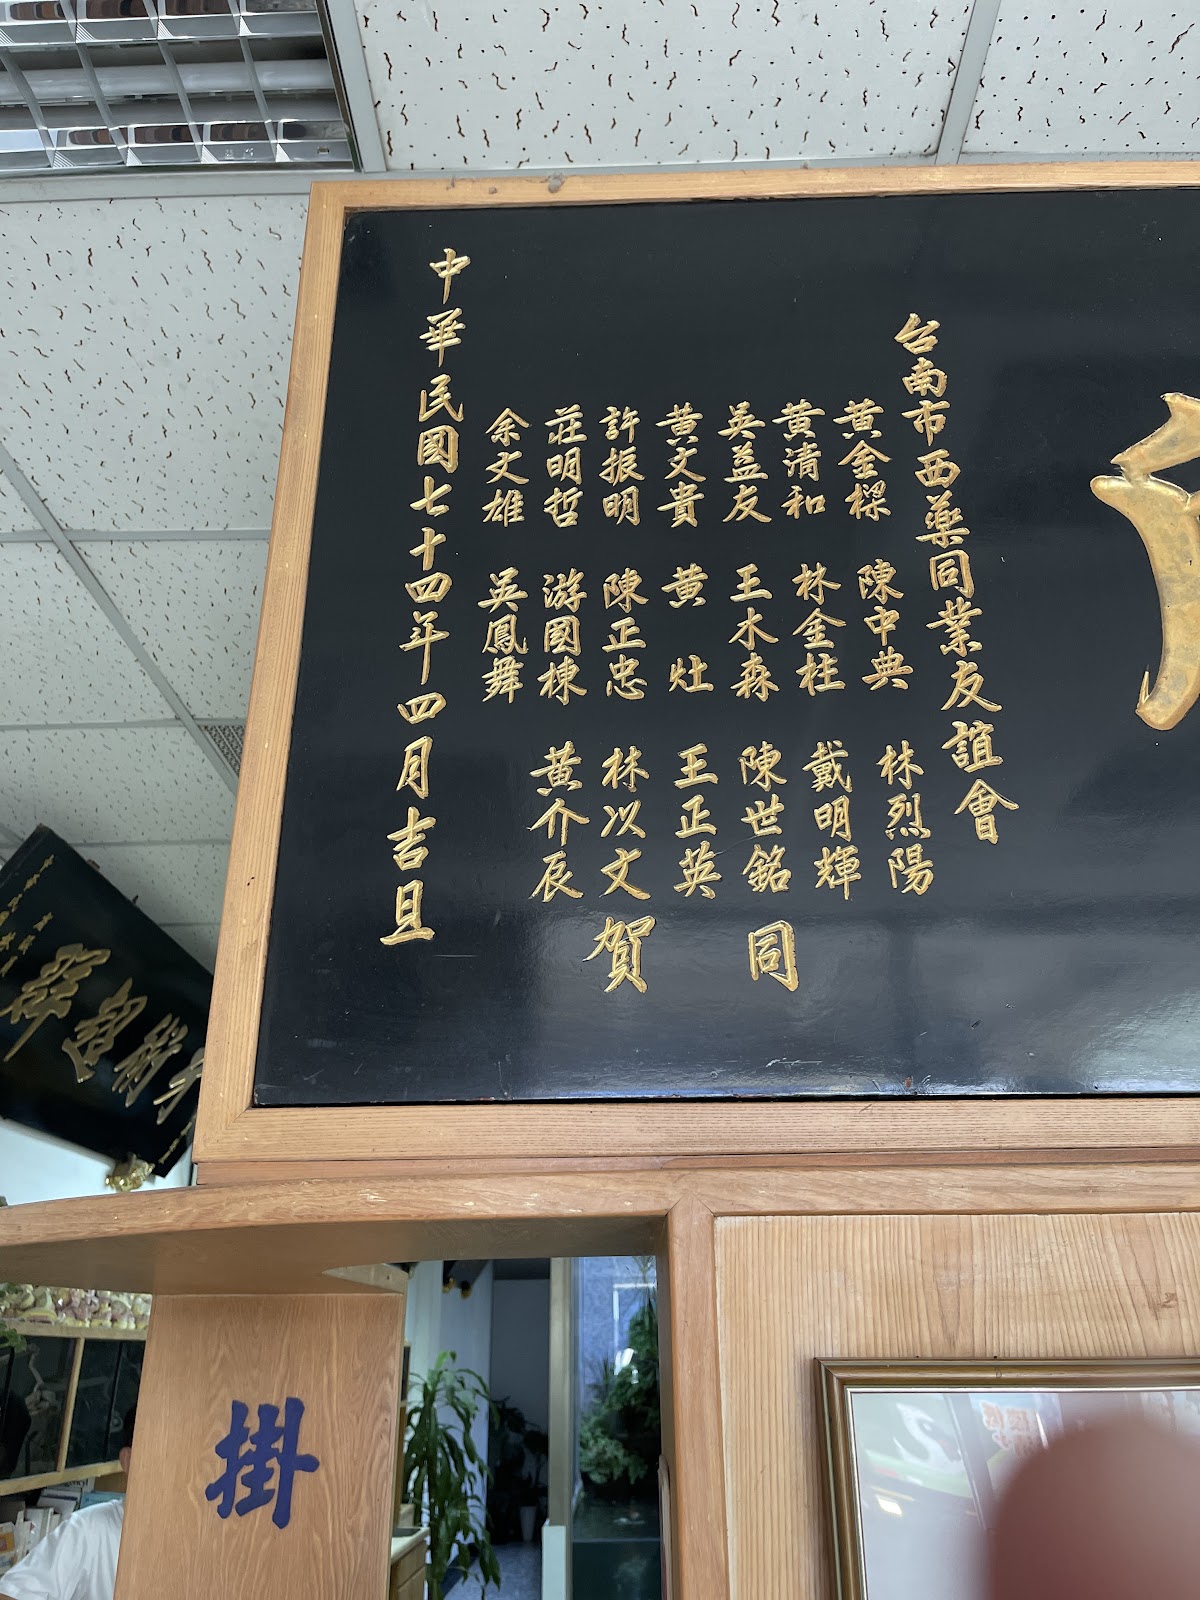 台南市西藥同業友誼會
黃金樑 陳中典 林烈陽
黃清和 林金柱 戴明輝
吳益友 王木森 陳世銘
黃文貴 黃灶 王正英
許振明 陳正忠 林以文
莊明哲 游國棟 黃介辰
余文雄 吳鳳舞
同賀
中華民國七十四年四月吉旦
掛